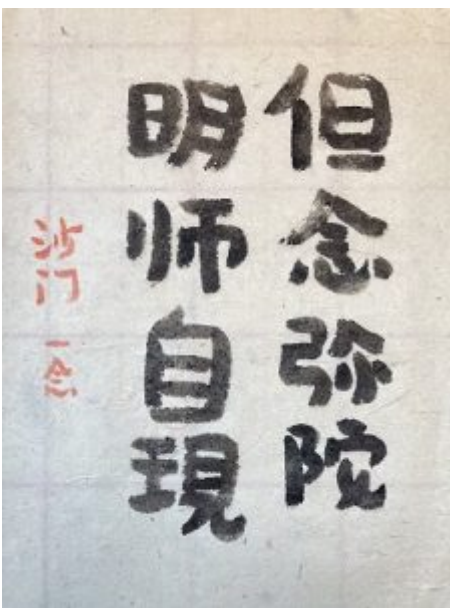 但念弥陀
明师自現
沙门 一念